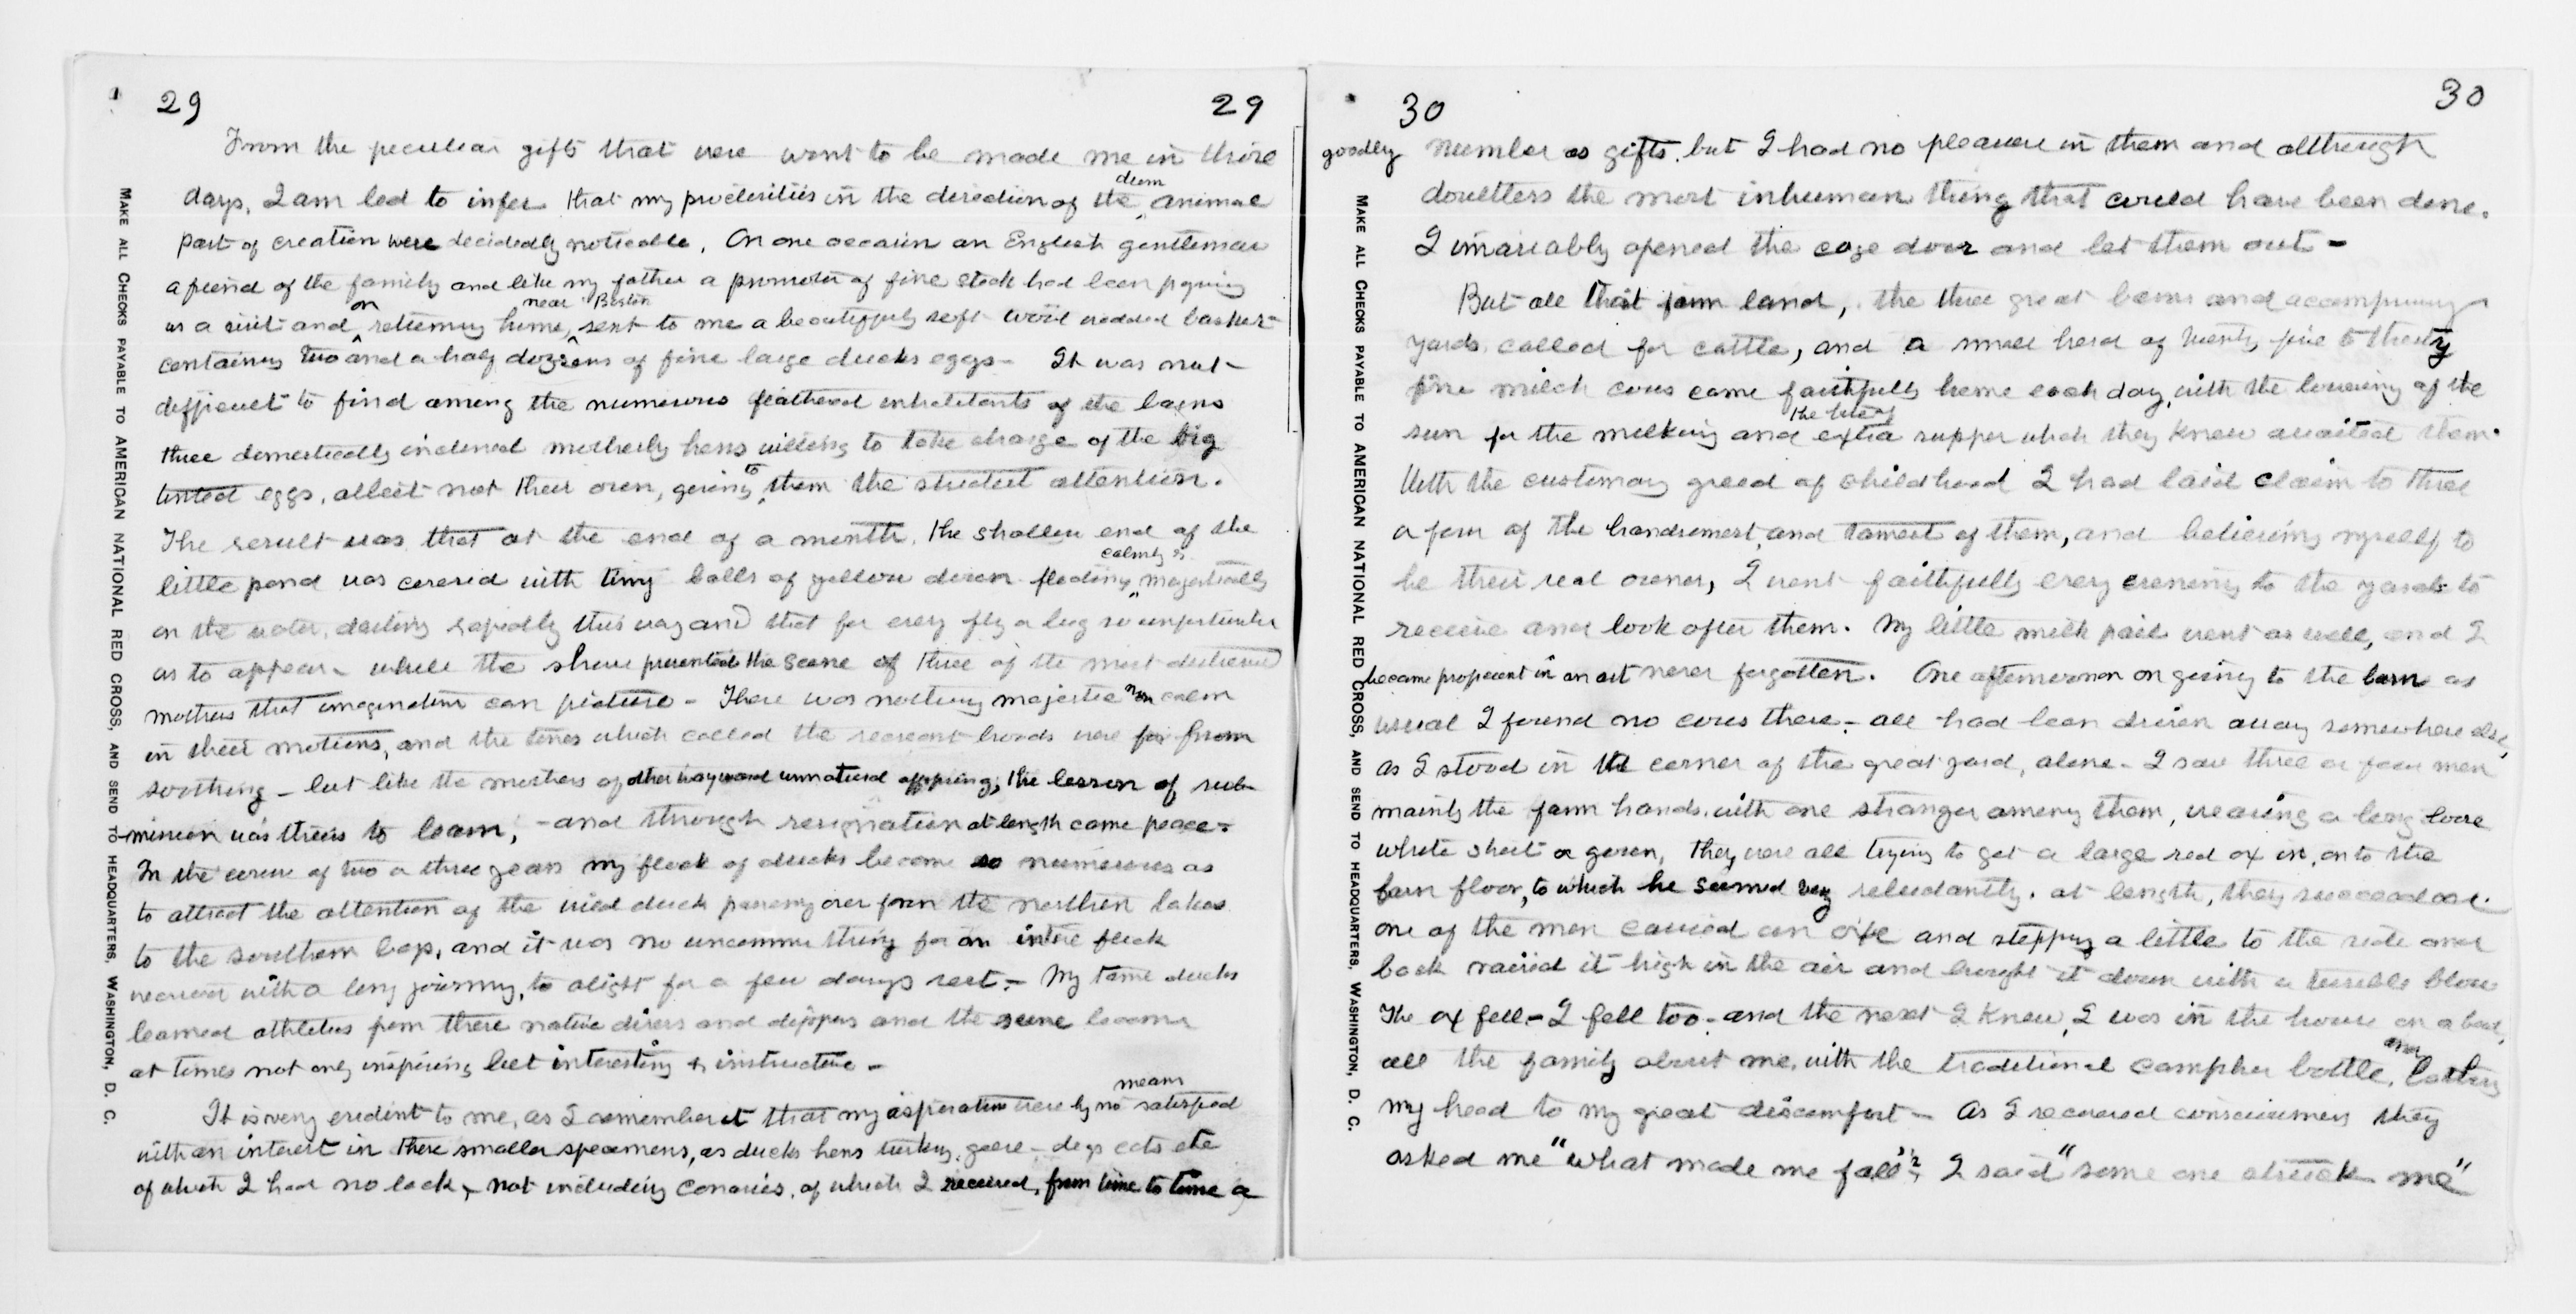 29 29
From the peculiar gifts that were wont to be made me in those
dum
days, I am led to infer that my proclivities in the direction of the animal
part of creation were decidedly noticable. On one occasion an English gentleman
a friend of the family and like my father a promoter of fine stock had been paying
on near Boston
us a visit and returning home, sent to me a beautifully soft wool wadded basket
containing two and a half dozens of fine large ducks eggs - It was not
difficult to find among the numerous feathered inhabitants of the barns
three domestically inclined motherly hens willing to take charge of the big
to
tinted eggs, albeit not their own, giving them the strictest attention.
The result was that at the end of a month, the shallow end of the
calmly &
little pond was covered with tiny balls of yellow down floating majestically
on the water, darting rapidly this way and that for every fly or bug so unfortunate
as to appear - while the shore presented the scene of three of the most distressed
mothers that imagination can picture - There was nothing majestic nor calm
in their motions, and the tones which called the recreant broods were far from
soothing - but like the mothers of other wayward unnatural offspring, the lesson of sub-
-mission was theirs to learn, - and through resignation at length came peace -
In the course of two or three years my flock of ducks became so numerous as
to attract the attention of the wild duck passing over from the northern lakes
to the southern bays, and it was no uncommon thing for an intire flock
wearied with a long journey, to alight for a few days rest. - My tame ducks
learned athletics from these native divers and dippers and the scene became
at times not only inspiring but interesting & instructive -
means
It is very evident to me, as I remember it that my aspirations were by no satisfied
with an interest in these smaller specimens, as ducks hens turkeys, geese - dogs cats etc
of which I had no lack, not including canaries, of which I received, from time to time a
MAKE ALL CHECKS PAYABLE TO AMERICAN NATIONAL RED CROSS, AND SEND TO HEADQUARTERS, WASHINGTON, D. C.
30 30
goodly number as gifts, but I had no pleasure in them and although
doubtless the most inhuman thing that could have been done.
I invariably opened the cage door and let them out -
But all that farm land, the three great barns and accompanying
yards, called for cattle, and a small herd of twenty five to thirty
fine milch cows came faithfully home each day, with the lowering of the
sun for the milking and extra supper which they knew awaited them.
With the customary greed of childhood I had laid claim to three
or four of the handsomest and tamest of them, and believing myself to
be their real owner, I went faithfully every evening to the yards to
receive and look after them. My little milk pail went as well, and I
became proficient in an art never forgotten. One afternoon on going to the barn as
usual I found no cows there - all had been driven away somewhere else,
as I stood in the corner of the great yard, alone - I saw three or four men
mainly the farm hands, with one stranger among them, wearing a long loose
white shirt or gown, They were all trying to get a large red ox in, on to the
barn floor, to which he seemed very reluctantly. at length, they succeeded.
one of the men carried an axe and stepping a little to the side and
back raised it high in the air and brought it down with a terrible blow
The ox fell - I fell too - and the next I knew, I was in the house on a bed,
and
all the family about me, with the traditional camphor bottle, bathing
my head to my great discomfort - As I recovered consciousness they
asked me "what made me fall"? I said "some one struck me"
MAKE ALL CHECKS PAYABLE TO AMERICAN NATIONAL RED CROSS, AND SEND TO HEADQUARTERS, WASHINGTON, D. C.